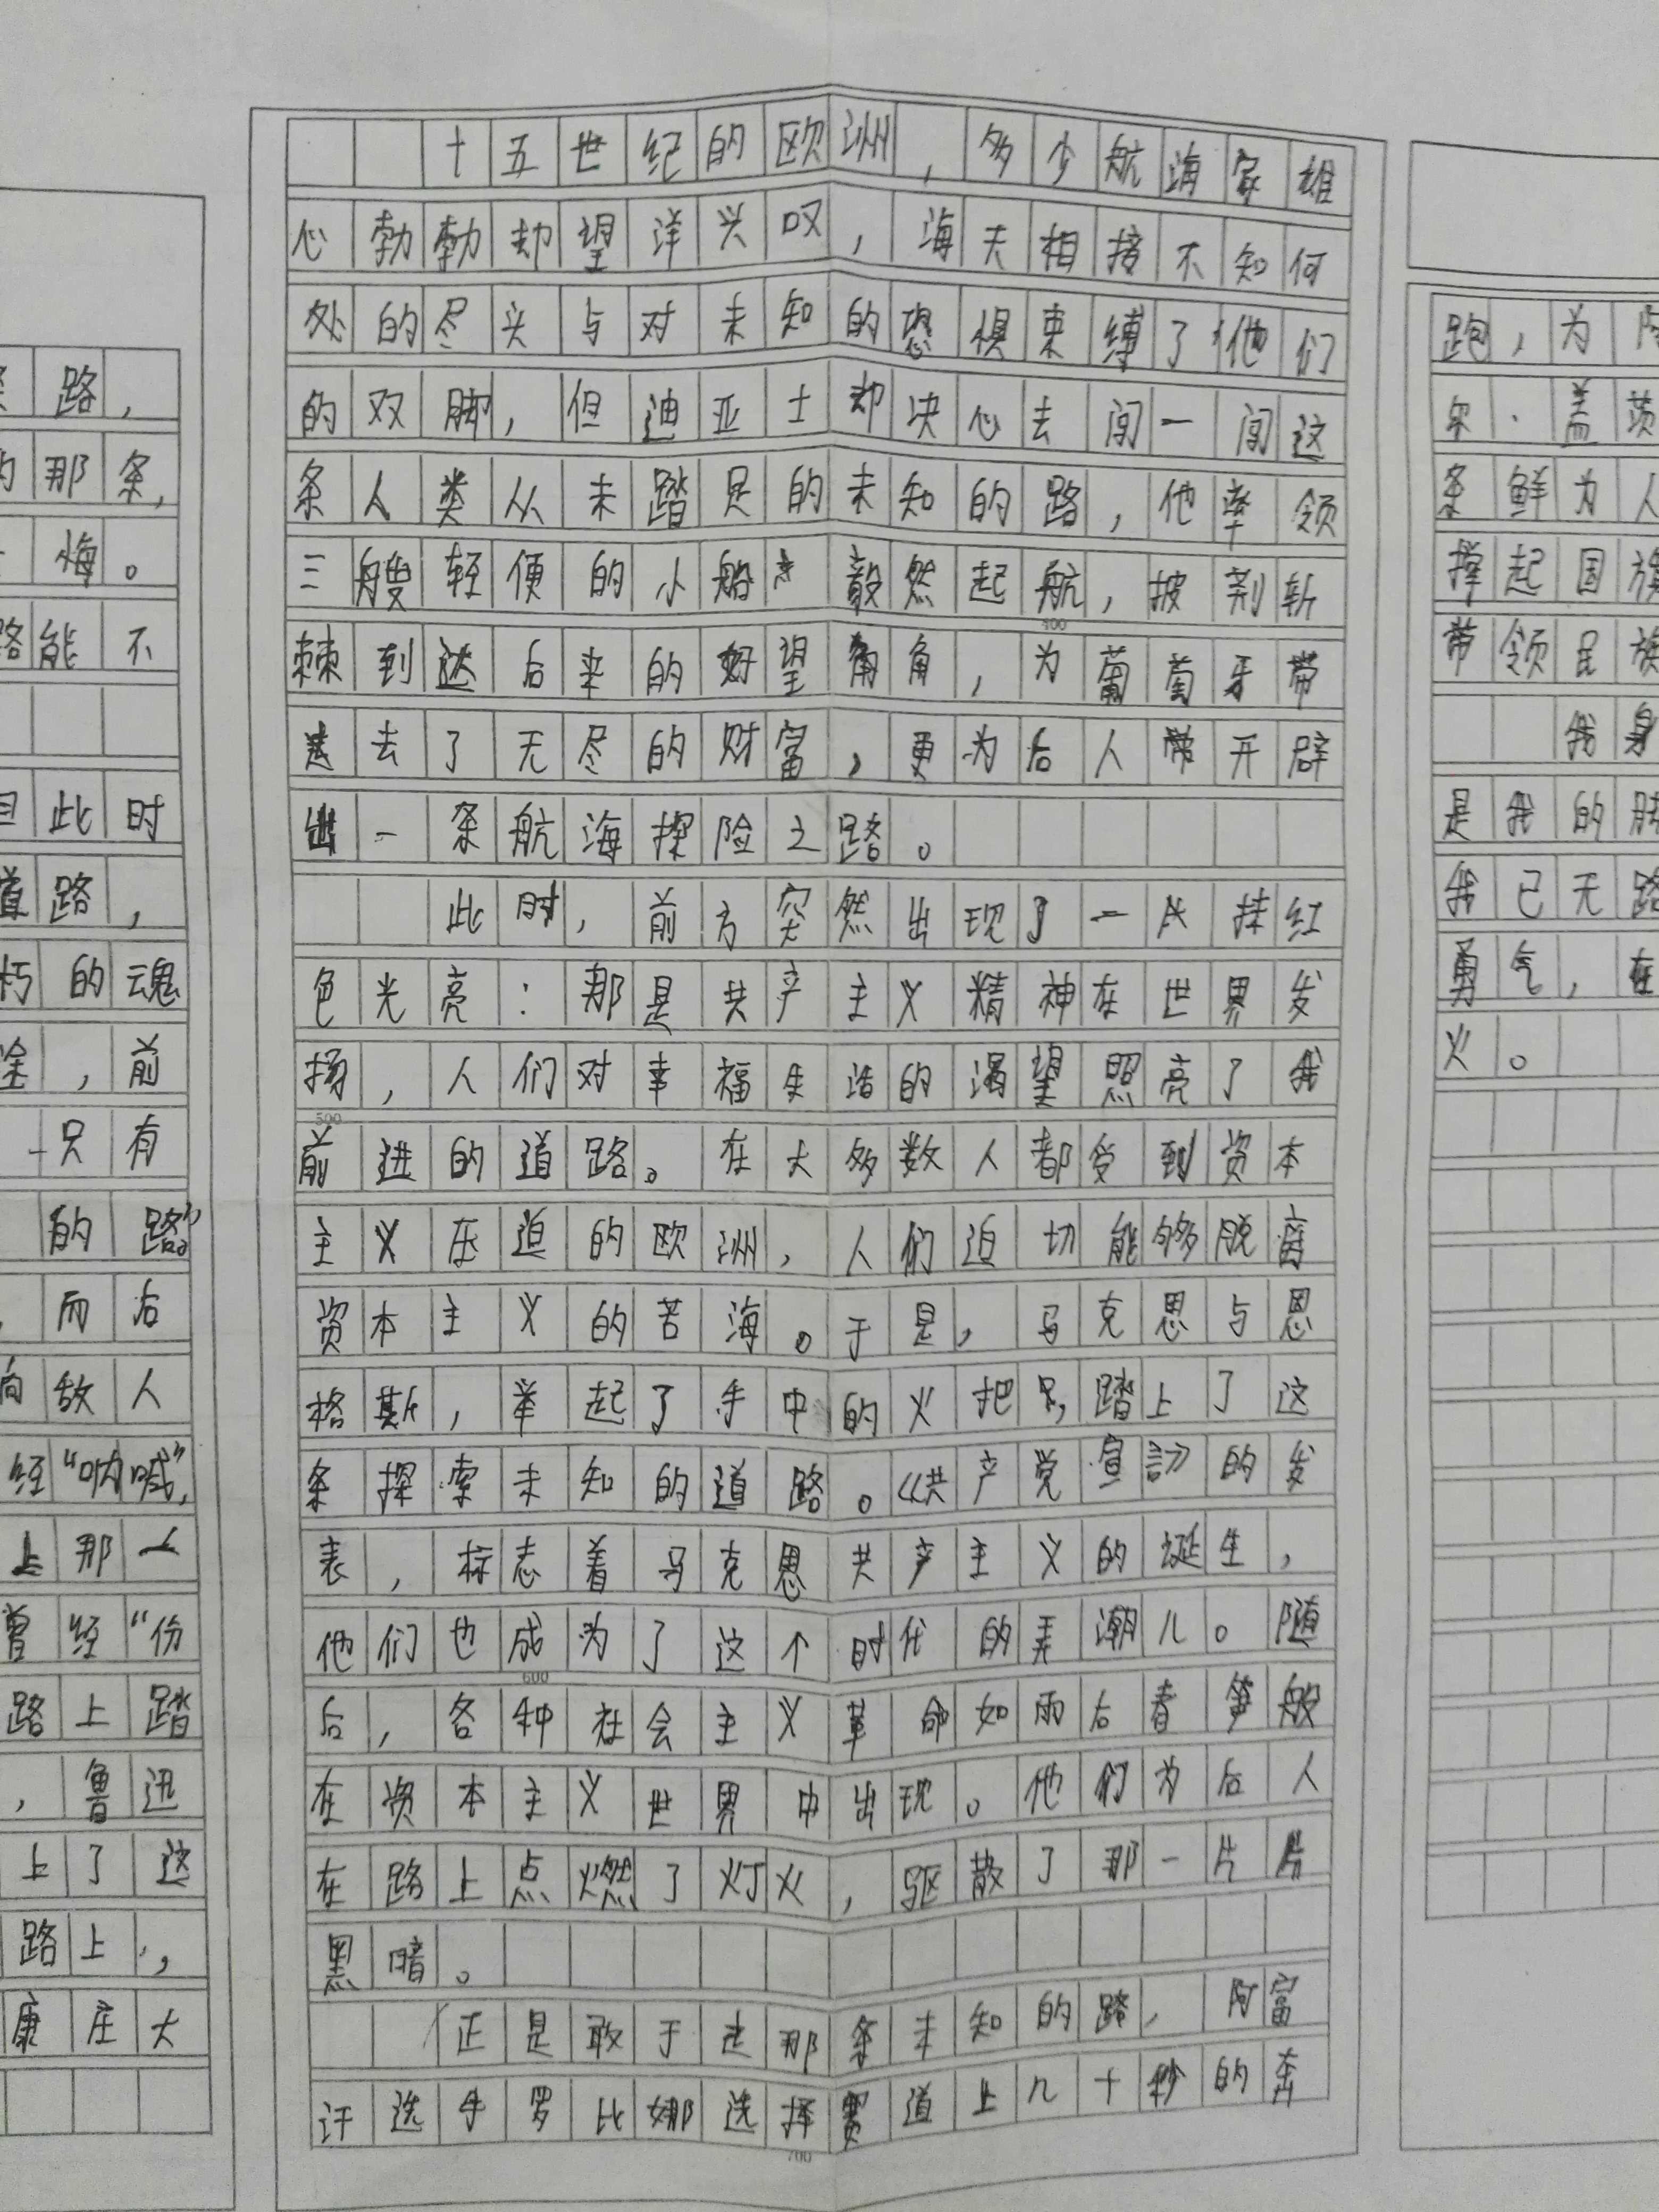 路，
那条，
悔。
路能不
此时
道路，
朽的魂
途，前
只有
的路。”
，而后
向敌人
经“呐喊”，
上那一
曾经“彷
路上踏
，鲁迅
上了这
路上，
康庄大
十五世纪的欧洲，多少航海家雄
心勃勃却望洋兴叹，海天相接不知何
处的尽头与对未知的恐惧束缚了他们
的双脚，但迪亚士却决心去闯一闯这
条人类从未踏足的未知的路，他率领
三艘轻便的小船毅然起航，披荆斩
棘到达后来的好望角，为葡萄牙带
去了无尽的财富，更为后人开辟
出一条航海探险之路。
此时，前方突然出现了一片抹红
色光亮：那是共产主义精神在世界发
扬，人们对幸福生活的渴望照亮了我
前进的道路。在大多数人都受到资本
主义压迫的欧洲，人们迫切能够脱离
资本主义的苦海。于是，马克思与恩
格斯，举起了手中的火把，踏上了这
条探索未知的道路。《共产党宣言》的发
表，标志着马克思共产主义的诞生，
他们也成为了这个时代的弄潮儿。随
后，各种社会主义革命如雨后春笋般
在资本主义世界中出现。他们为后人
在路上点燃了灯火，驱散了那一片片
黑暗。
正是敢于走那条未知的路，阿富
汗选手罗比娜选择赛道上几十秒的奔
400
500
600
700
跑，为阿
尔·盖茨
条鲜为人
撑起国旗
带领民族
我身
是我的脚
我已无路
勇气，在
火。